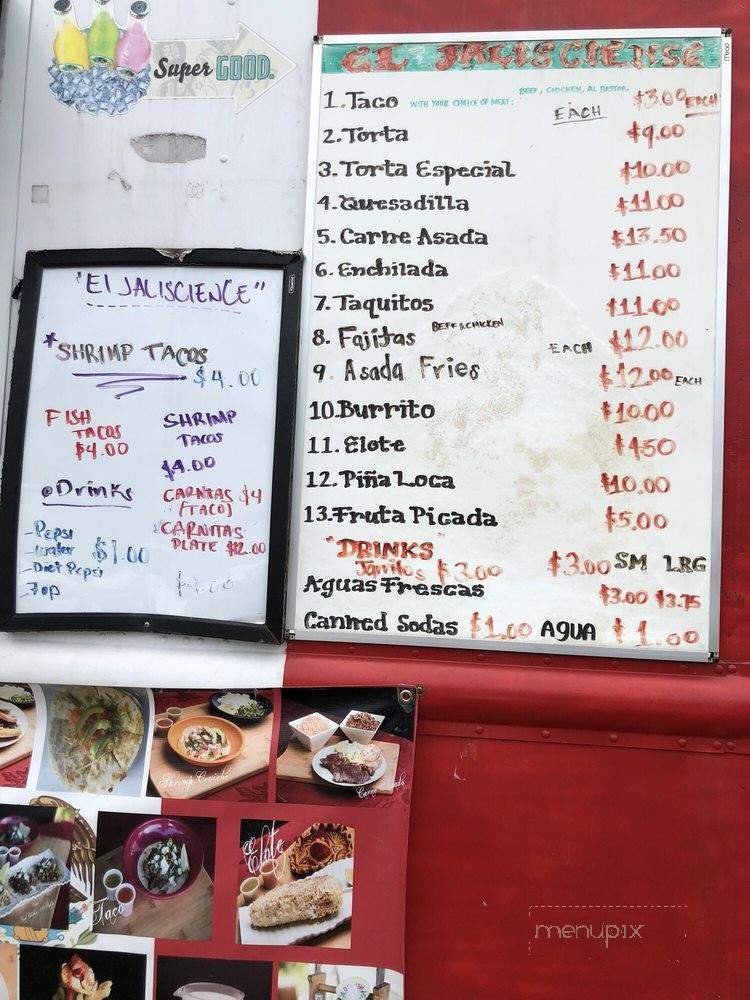 Super GOOD.
EL JALISCIENSE
1. Taco WITH YOUR CHOICE OF MEAT: BEEF, CHICKEN, AL PASTOR. EACH $3.00 EACH
2. Torta $9.00
3. Torta Especial $10.00
4. Quesadilla $11.00
5. Carne Asada $13.50
6. Enchilada $11.00
7. Taquitos $11.00
8. Fajitas BEEF & CHICKEN EACH $12.00
9. Asada Fries $12.00 EACH
10. Burrito $10.00
11. Elote $4.50
12. Piña Loca $10.00
13. Fruta Picada $5.00
"DRINKS"
Jarritos $3.00 $3.00 SM LRG
Aguas Frescas $3.00 $3.75
Canned Sodas $1.00 AGUA $1.00
"El JALISCIENCE"
*SHRIMP TACOS
$4.00
FISH
TACOS
$4.00
SHRIMP
TACOS
$4.00
Drinks
-Pepsi
-water $1.00
-Diet Pepsi
-7up
CARNITAS $4
(TACO)
CARNITAS
PLATE $12.00
Shrimp Ceviche
Carne Asada
Taco
Elote
menupix